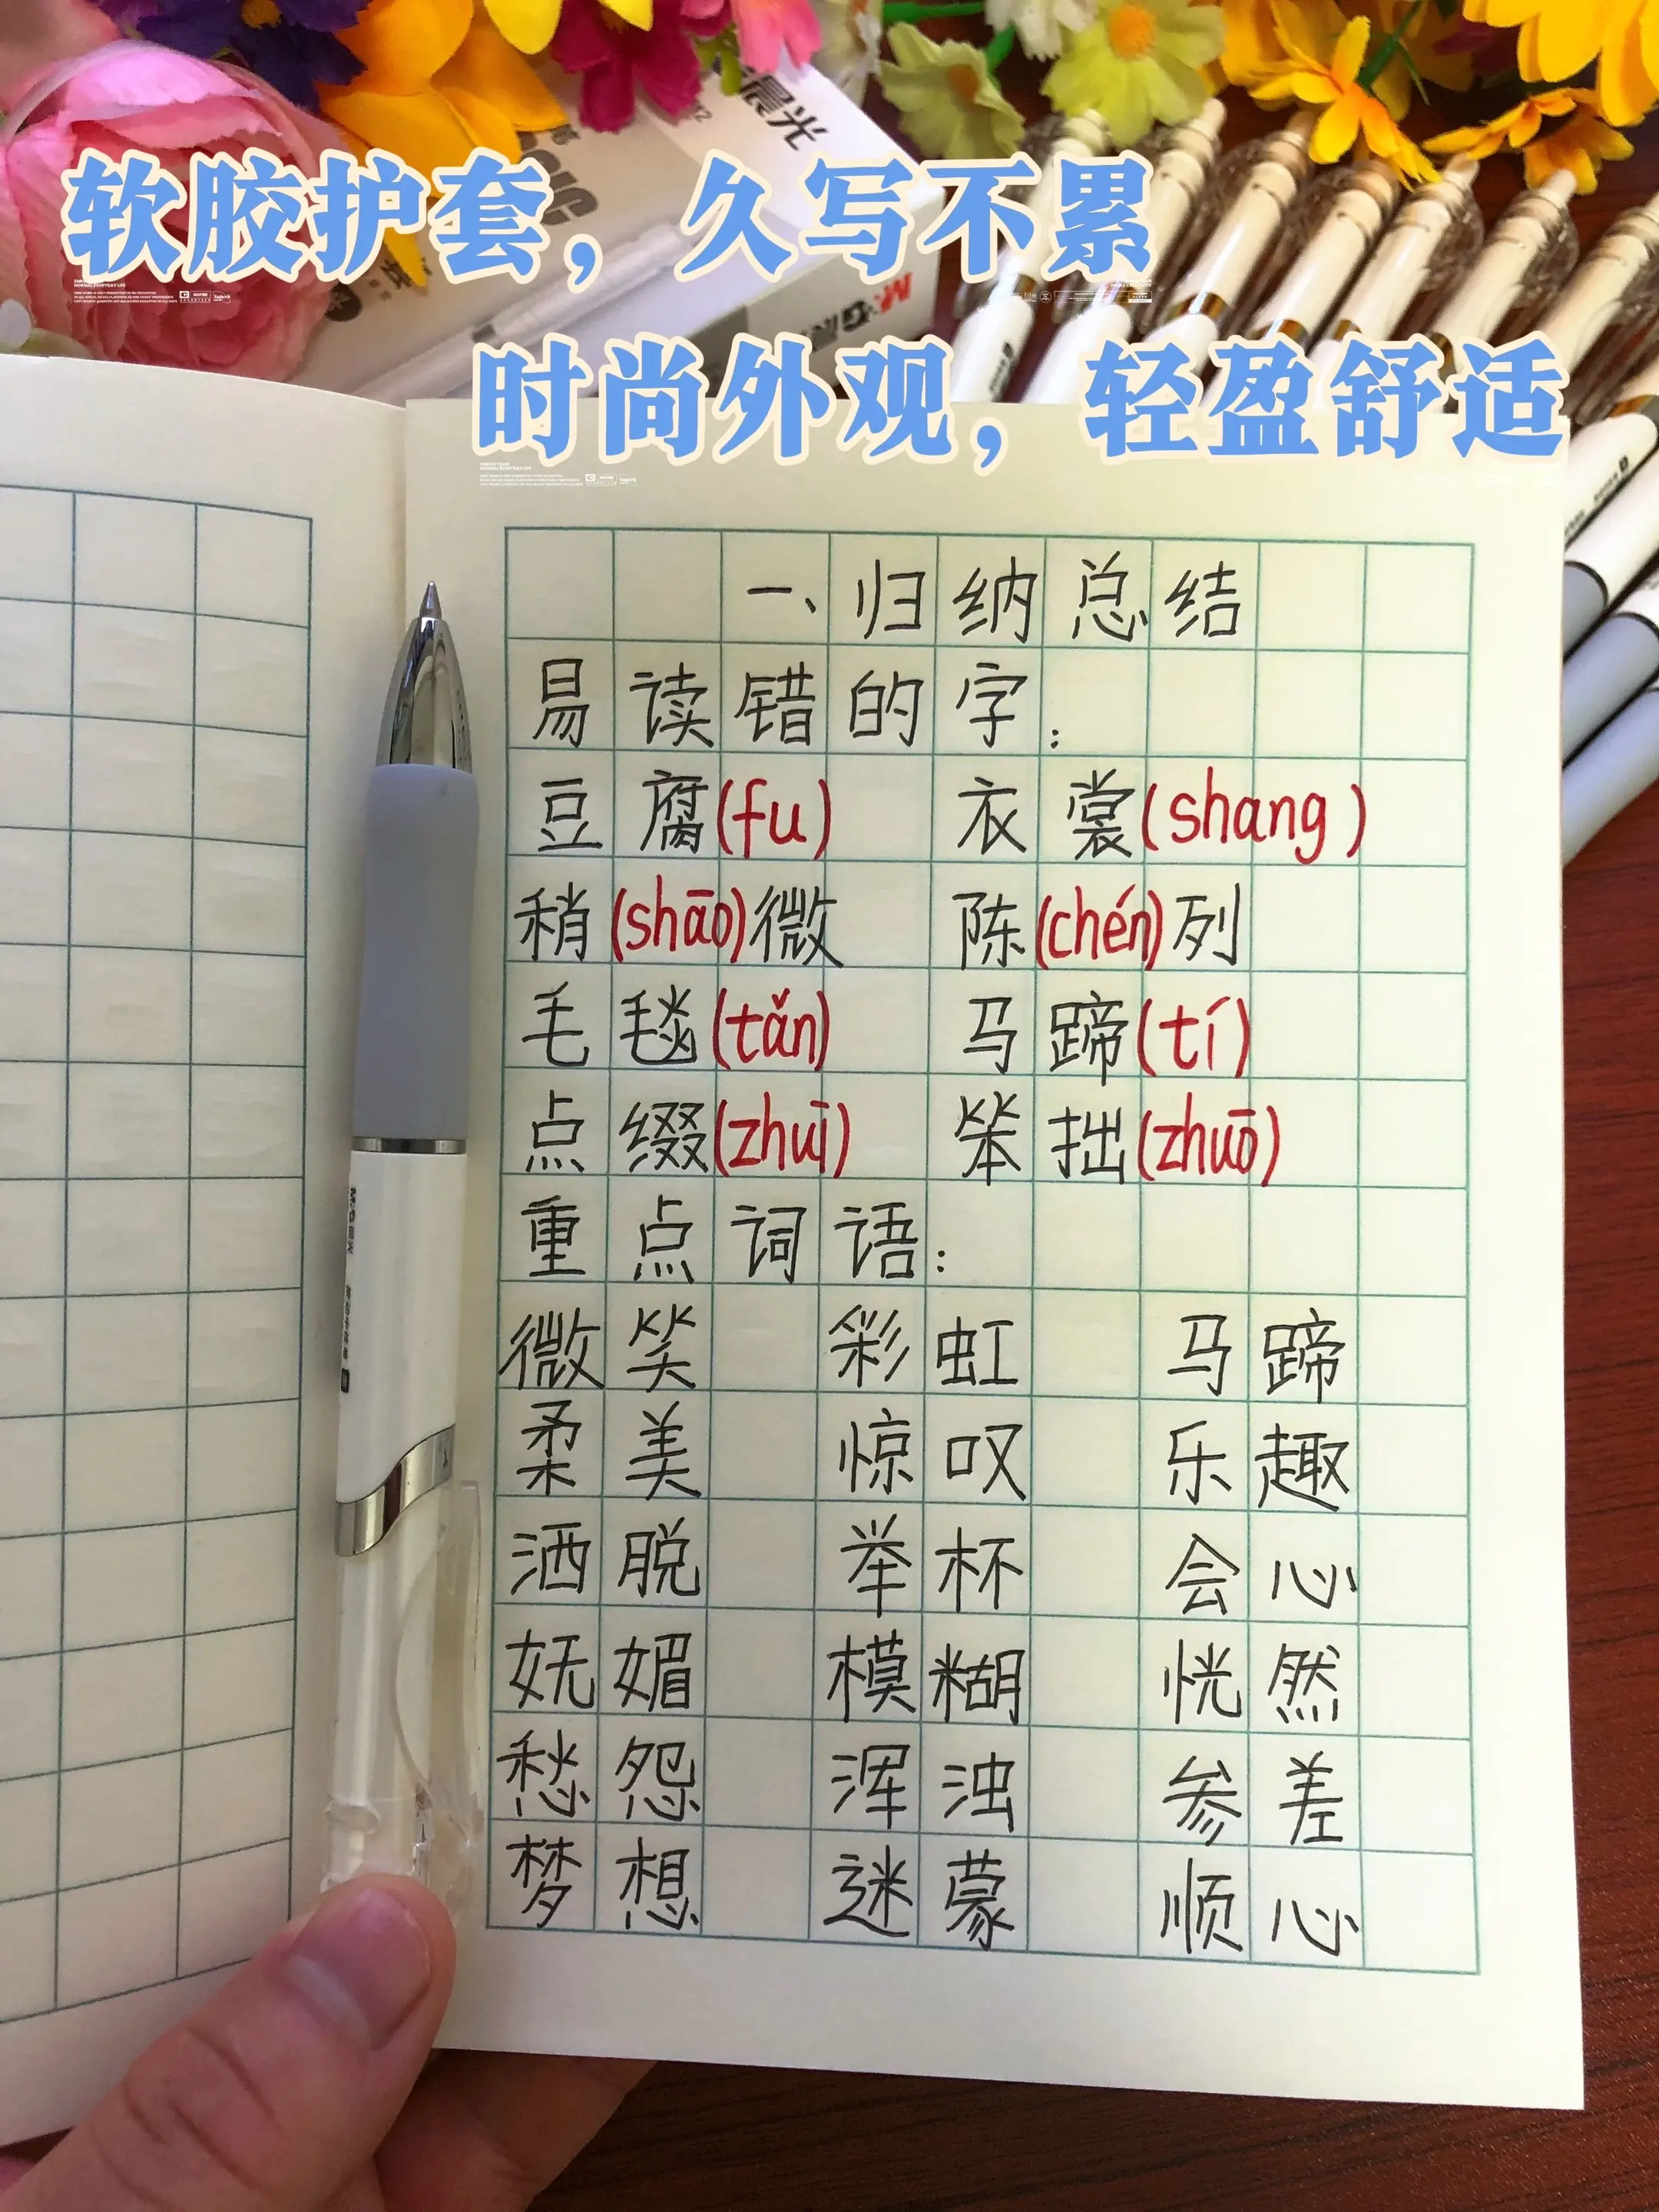 晨光
软胶护套，久写不累
时尚外观，轻盈舒适
一、归纳总结
易读错的字：
豆腐(fu) 衣裳(shang)
稍(shāo)微 陈(chén)列
毛毯(tǎn) 马蹄(tí)
点缀(zhuì) 笨拙(zhuō)
重点词语：
微笑 彩虹 马蹄
柔美 惊叹 乐趣
洒脱 举杯 会心
妩媚 模糊 恍然
愁怨 浑浊 参差
梦想 迷蒙 顺心